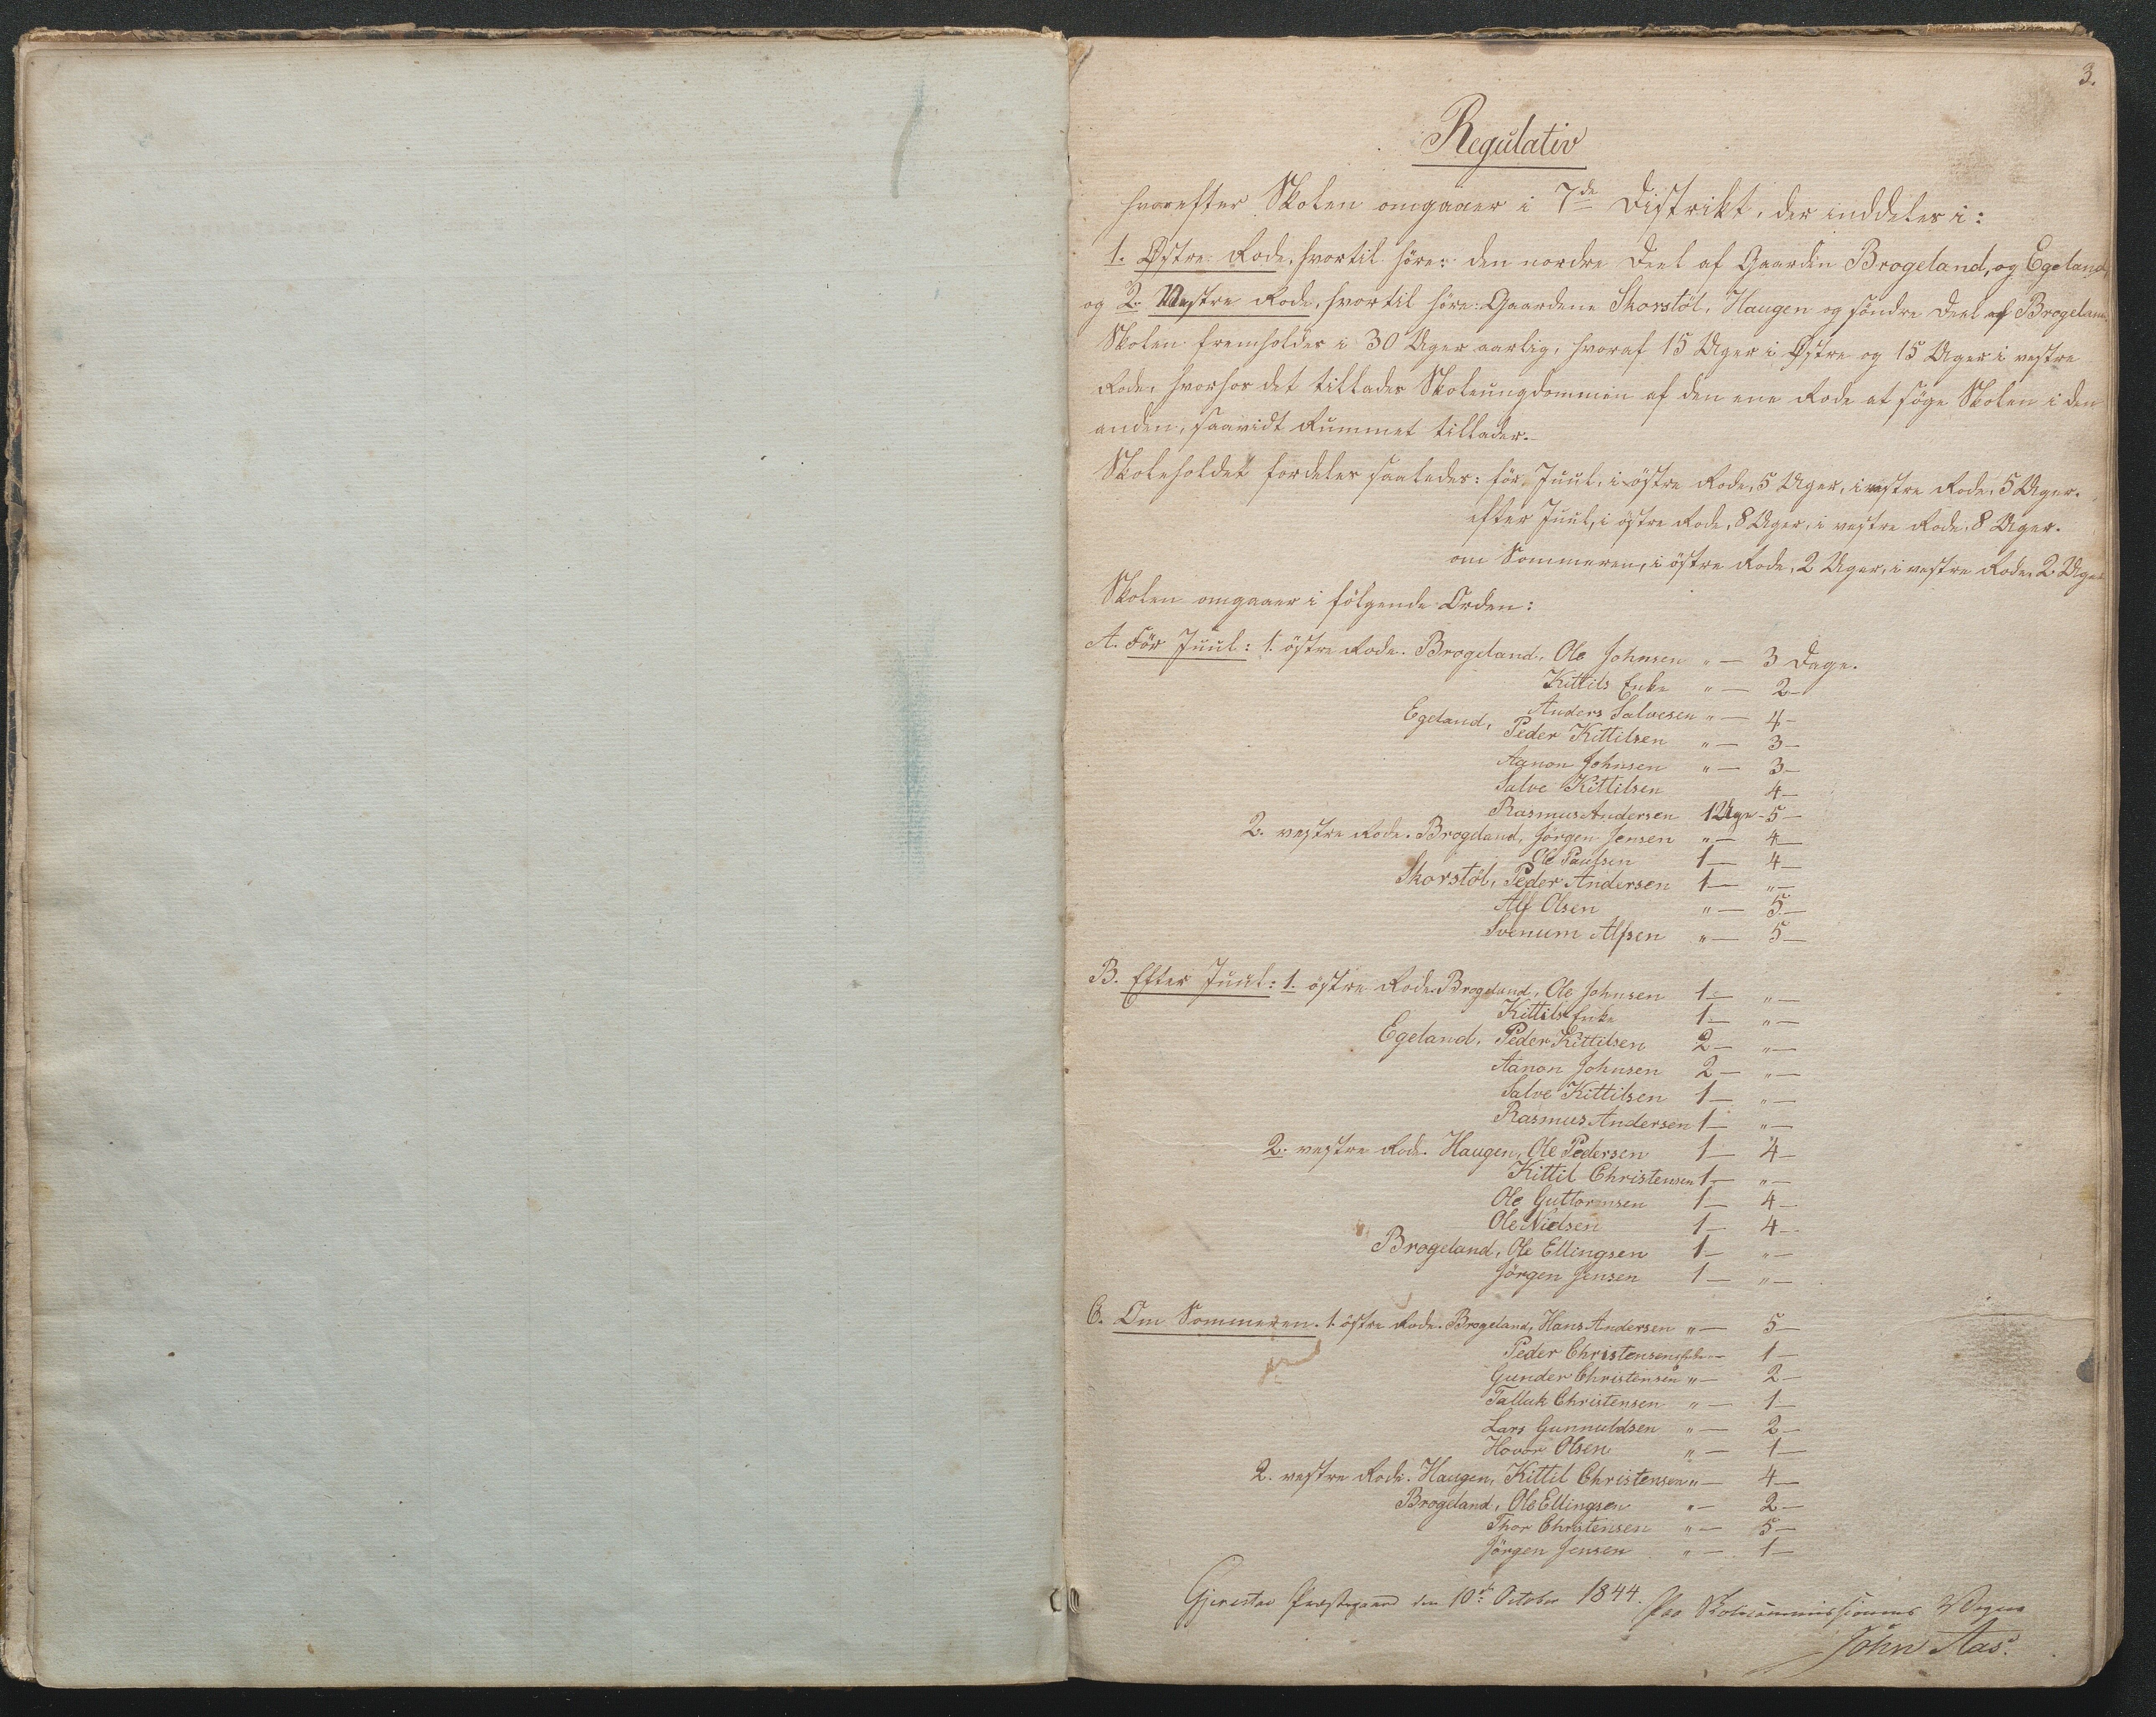 3.
Regulativ
hvorefter Skolen omgaaer i 7de Distrikt, der inddeles i:
1. Østre Rode, hvortil höre: den nordre Deel af Gaarden Brogeland, og Egeland,
og 2. Vestre Rode, hvortil höre: Gaardene Skorstöl, Haugen og söndre Deel af Brogeland.
Skolen fremholdes i 30 Uger aarlig, hvoraf 15 Uger i Østre og 15 Uger i vestre
Rode, hvorhos det tillades Skoleungdommen af den ene Rode at söge Skolen i den
anden, saavidt Rummet tillader.
Skoleholdet fordeles saaledes: för Juul, i östre Rode, 5 Uger, i vestre Rode, 5 Uger.
efter Juul, i östre Rode, 8 Uger, i vestre Rode, 8 Uger.
om Sommeren, i östre Rode, 2 Uger, i vestre Rode, 2 Uger
Skolen omgaaer i fölgende Orden:
A. För Juul: 1. östre Rode. Brogeland, Ole Johnsen " — 3 Dage.
Kittils Enke " — 2 —
Anders Salvesen " — 4 —
Egeland, Peder Kittilsen " — 3 —
Aanon Johnsen " — 3 —
Salve Kittilsen 4 —
Rasmus Andersen 1 Uge - 5 —
2. vestre Rode. Brogeland, Jörgen Jensen " — 4 —
Ole Paulsen 1 — 4 —
Skorstöl, Peder Andersen 1 — " —
Alf Olsen " — 5 —
Svenum Alfsen " — 5 —
B. Efter Juul: 1. östre Rode. Brogeland, Ole Johnsen 1 — " —
Kittils Enke 1 — " —
Egeland, Peder Kittilsen 2 — " —
Aanon Johnsen 2 — " —
Salve Kittilsen 1 — " —
Rasmus Andersen 1 — " —
2. vestre Rode. Haugen, Ole Pedersen 1 — 4 —
Kittil Christensen 1 — " —
Ole Guttormsen 1 — 4 —
Ole Nielsen 1 — 4 —
Brogeland, Ole Ellingsen 1 — " —
Jörgen Jensen 1 — " —
C. Om Sommeren. 1. östre Rode. Brogeland, Hans Andersen " — 5 —
Peder Christensens — 1 —
Gunder Christensen " — 2 —
Talluk Christensen " — 1 —
Lars Gunnuldsen " — 2 —
Hovor Olsen " — 1 —
2. vestre Rode. Haugen, Kittil Christensen " — 4 —
Brogeland, Ole Ellingsen " — 2 —
Thor Christensen " — 5 —
Jörgen Jensen " — 1 —
Gjerestad Præstegaard den 10de October 1844.
Paa Skolecommissionens Vegne
John Aas.